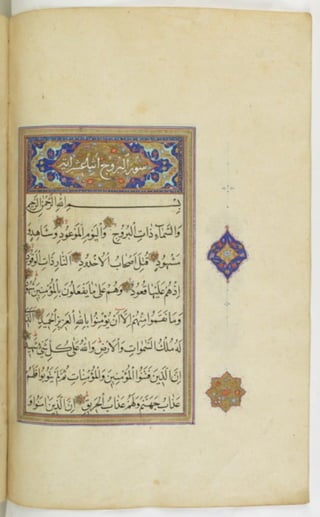 سورة البروج اثنان وعشرون آية
بسم الله الرحمن الرحيم
وَالسَّمَاءِ ذَاتِ الْبُرُوجِ وَالْيَوْمِ الْمَوْعُودِ وَشَاهِدٍ
وَمَشْهُودٍ قُتِلَ أَصْحَابُ الْأُخْدُودِ النَّارِ ذَاتِ الْوَقُودِ
إِذْ هُمْ عَلَيْهَا قُعُودٌ وَهُمْ عَلَى مَا يَفْعَلُونَ بِالْمُؤْمِنِينَ شُهُودٌ
وَمَا نَقَمُوا مِنْهُمْ إِلَّا أَنْ يُؤْمِنُوا بِاللَّهِ الْعَزِيزِ الْحَمِيدِ الَّذِي
لَهُ مُلْكُ السَّمَوَاتِ وَالْأَرْضِ وَاللَّهُ عَلَى كُلِّ شَيْءٍ شَهِيدٌ
إِنَّ الَّذِينَ فَتَنُوا الْمُؤْمِنِينَ وَالْمُؤْمِنَاتِ ثُمَّ لَمْ يَتُوبُوا فَلَهُمْ
عَذَابُ جَهَنَّمَ وَلَهُمْ عَذَابُ الْحَرِيقِ إِنَّ الَّذِينَ آمَنُوا وَ